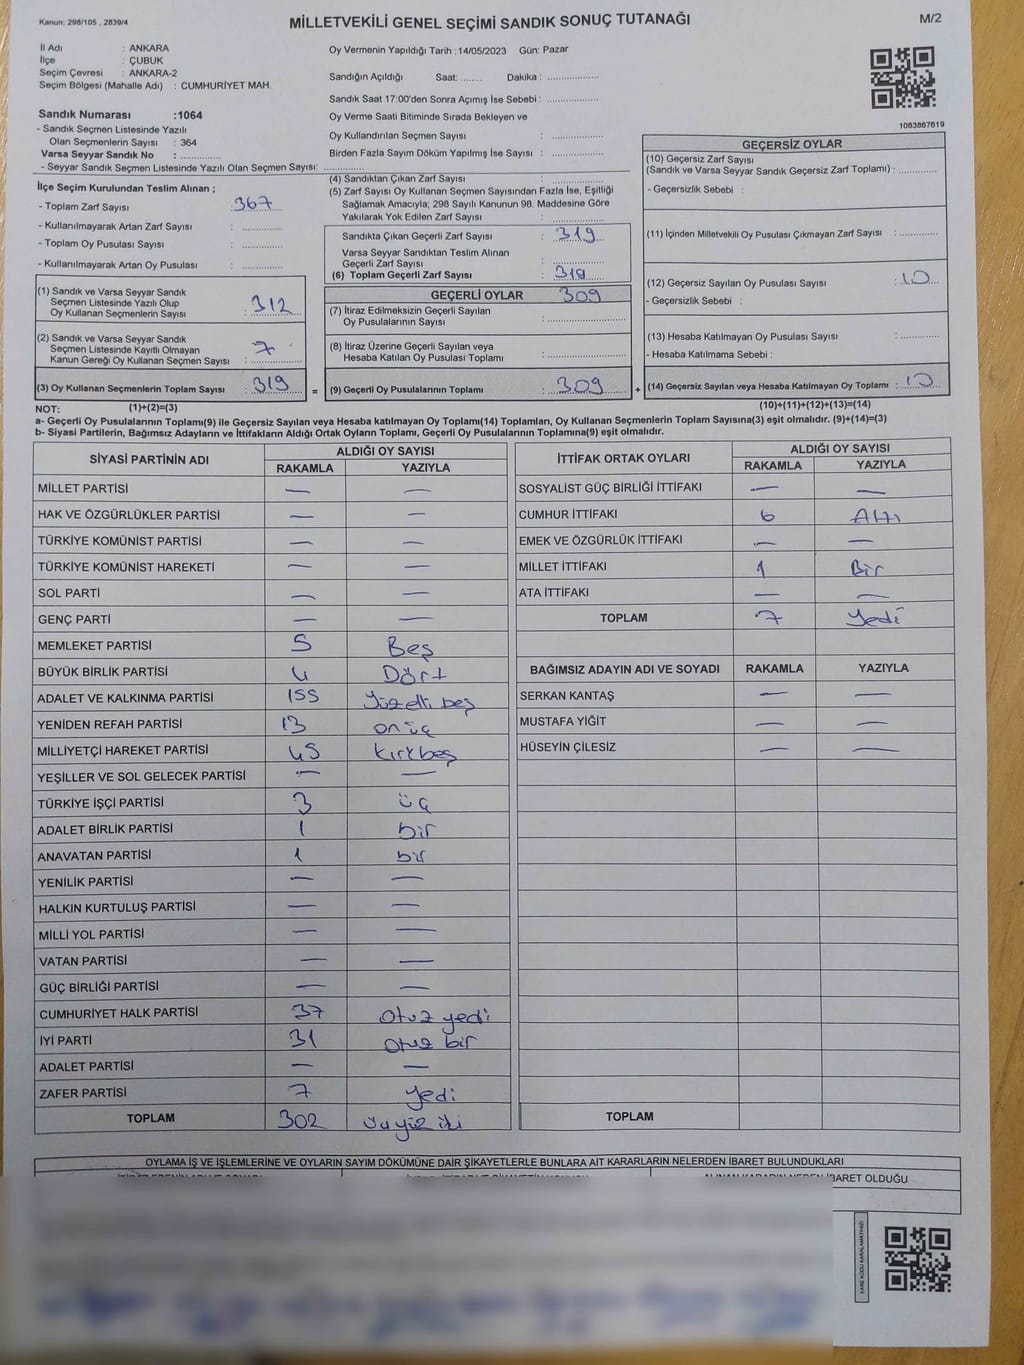 Kanun: 298/105 , 2839/4
MİLLETVEKİLİ GENEL SEÇİMİ SANDIK SONUÇ TUTANAĞI
M/2
İl Adı : ANKARA
İlçe : ÇUBUK
Seçim Çevresi : ANKARA-2
Seçim Bölgesi (Mahalle Adı) : CUMHURİYET MAH.
Sandık Numarası :1064
- Sandık Seçmen Listesinde Yazılı
Olan Seçmenlerin Sayısı : 364
Varsa Seyyar Sandık No : ..............
- Seyyar Sandık Seçmen Listesinde Yazılı Olan Seçmen Sayısı: ..............
Oy Vermenin Yapıldığı Tarih :14/05/2023 Gün: Pazar
Sandığın Açıldığı Saat: ........ Dakika : ..................
Sandık Saat 17:00'den Sonra Açımış İse Sebebi : ..................
Oy Verme Saati Bitiminde Sırada Bekleyen ve
Oy Kullandırılan Seçmen Sayısı : ..................
Birden Fazla Sayım Döküm Yapılmış İse Sayısı : ..................
1083867619
İlçe Seçim Kurulundan Teslim Alınan ;
- Toplam Zarf Sayısı : 367
- Kullanılmayarak Artan Zarf Sayısı : ..............
- Toplam Oy Pusulası Sayısı : ..............
- Kullanılmayarak Artan Oy Pusulası : ..............
(1) Sandık ve Varsa Seyyar Sandık
Seçmen Listesinde Yazılı Olup
Oy Kullanan Seçmenlerin Sayısı : 312
(2) Sandık ve Varsa Seyyar Sandık
Seçmen Listesinde Kayıtlı Olmayan
Kanun Gereği Oy Kullanan Seçmen Sayısı : 7
(3) Oy Kullanan Seçmenlerin Toplam Sayısı : 319 =
(4) Sandıktan Çıkan Zarf Sayısı : ..............
(5) Zarf Sayısı Oy Kullanan Seçmen Sayısından Fazla İse, Eşitliği
Sağlamak Amacıyla; 298 Sayılı Kanunun 98. Maddesine Göre
Yakılarak Yok Edilen Zarf Sayısı : ..............
Sandıkta Çıkan Geçerli Zarf Sayısı : 319
Varsa Seyyar Sandıktan Teslim Alınan
Geçerli Zarf Sayısı : ..............
(6) Toplam Geçerli Zarf Sayısı : 319
GEÇERLİ OYLAR 309
(7) İtiraz Edilmeksizin Geçerli Sayılan
Oy Pusulalarının Sayısı : ..............
(8) İtiraz Üzerine Geçerli Sayılan veya
Hesaba Katılan Oy Pusulası Toplamı : ..............
(9) Geçerli Oy Pusulalarının Toplamı : 309 +
GEÇERSİZ OYLAR
(10) Geçersiz Zarf Sayısı
(Sandık ve Varsa Seyyar Sandık Geçersiz Zarf Toplamı) : ..............
- Geçersizlik Sebebi :
(11) İçinden Milletvekili Oy Pusulası Çıkmayan Zarf Sayısı : ..............
(12) Geçersiz Sayılan Oy Pusulası Sayısı : 10
- Geçersizlik Sebebi :
(13) Hesaba Katılmayan Oy Pusulası Sayısı : ..............
- Hesaba Katılmama Sebebi :
(14) Geçersiz Sayılan veya Hesaba Katılmayan Oy Toplamı : 10
NOT: (1)+(2)=(3)
(10)+(11)+(12)+(13)=(14)
a- Geçerli Oy Pusulalarının Toplamı(9) ile Geçersiz Sayılan veya Hesaba katılmayan Oy Toplamı(14) Toplamları, Oy Kullanan Seçmenlerin Toplam Sayısına(3) eşit olmalıdır. (9)+(14)=(3)
b- Siyasi Partilerin, Bağımsız Adayların ve İttifakların Aldığı Ortak Oyların Toplamı, Geçerli Oy Pusulalarının Toplamına(9) eşit olmalıdır.
SİYASİ PARTİNİN ADI ALDIĞI OY SAYISI
RAKAMLA YAZIYLA
MİLLET PARTİSİ — —
HAK VE ÖZGÜRLÜKLER PARTİSİ — —
TÜRKİYE KOMÜNİST PARTİSİ — —
TÜRKİYE KOMÜNİST HAREKETİ — —
SOL PARTİ — —
GENÇ PARTİ — —
MEMLEKET PARTİSİ 5 Beş
BÜYÜK BİRLİK PARTİSİ 4 Dört
ADALET VE KALKINMA PARTİSİ 155 Yüzelli beş
YENİDEN REFAH PARTİSİ 13 on üç
MİLLİYETÇİ HAREKET PARTİSİ 45 Kırkbeş
YEŞİLLER VE SOL GELECEK PARTİSİ — —
TÜRKİYE İŞÇİ PARTİSİ 3 üç
ADALET BİRLİK PARTİSİ 1 bir
ANAVATAN PARTİSİ 1 bir
YENİLİK PARTİSİ — —
HALKIN KURTULUŞ PARTİSİ — —
MİLLİ YOL PARTİSİ — —
VATAN PARTİSİ — —
GÜÇ BİRLİĞİ PARTİSİ — —
CUMHURİYET HALK PARTİSİ 37 otuz yedi
İYİ PARTİ 31 otuz bir
ADALET PARTİSİ — —
ZAFER PARTİSİ 7 yedi
TOPLAM 302 üçyüz iki
İTTİFAK ORTAK OYLARI ALDIĞI OY SAYISI
RAKAMLA YAZIYLA
SOSYALİST GÜÇ BİRLİĞİ İTTİFAKI — —
CUMHUR İTTİFAKI 6 Altı
EMEK VE ÖZGÜRLÜK İTTİFAKI — —
MİLLET İTTİFAKI 1 Bir
ATA İTTİFAKI — —
TOPLAM 7 Yedi
BAĞIMSIZ ADAYIN ADI VE SOYADI RAKAMLA YAZIYLA
SERKAN KANTAŞ — —
MUSTAFA YİĞİT — —
HÜSEYİN ÇİLESİZ — —
TOPLAM
OYLAMA İŞ VE İŞLEMLERİNE VE OYLARIN SAYIM DÖKÜMÜNE DAİR ŞİKAYETLERLE BUNLARA AİT KARARLARIN NELERDEN İBARET BULUNDUKLARI
ALINAN KARARIN NEDEN İBARET OLDUĞU
KARE KODU KARALAMAYINIZ!